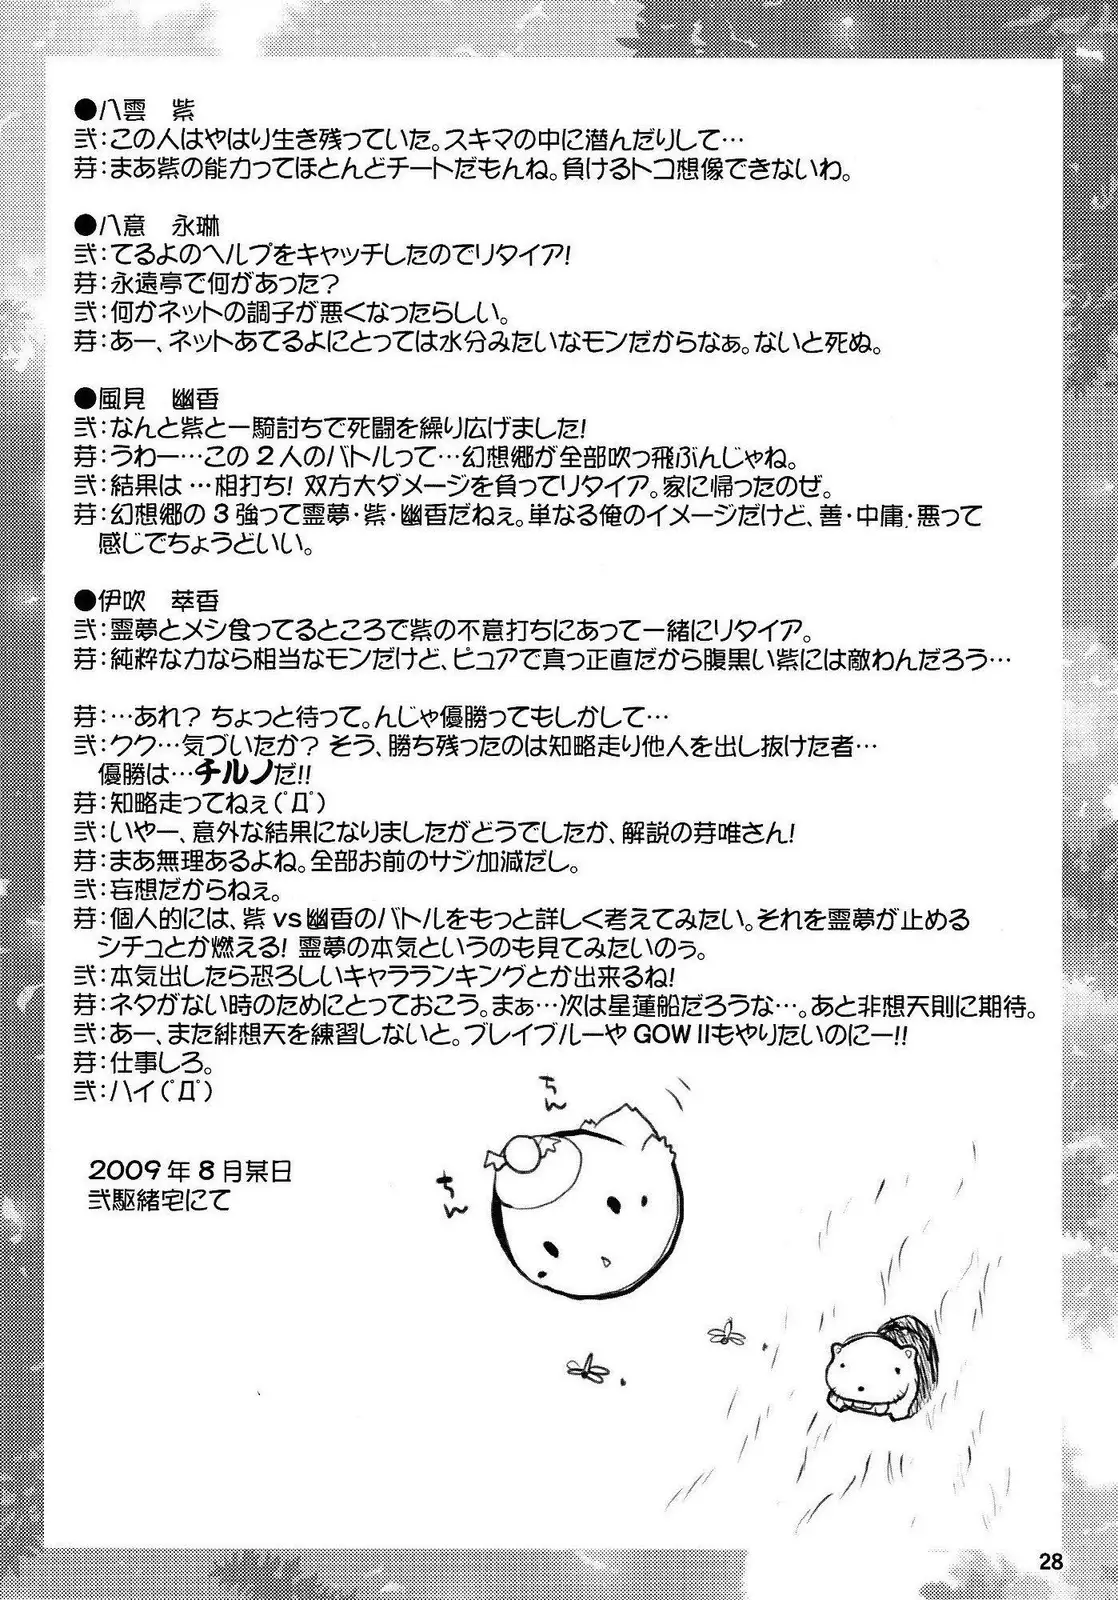 ●八雲　紫
弐：この人はやはり生き残っていた。スキマの中に潜んだりして…
芽：まあ紫の能力ってほとんどチートだもんね。負けるトコ想像できないわ。
●八意　永琳
弐：てるよのヘルプをキャッチしたのでリタイア！
芽：永遠亭で何があった？
弐：何かネットの調子が悪くなったらしい。
芽：あー、ネットあてるよにとっては水分みたいなモンだからなぁ。ないと死ぬ。
●風見　幽香
弐：なんと紫と一騎討ちで死闘を繰り広げました！
芽：うわー…この２人のバトルって…幻想郷が全部吹っ飛ぶんじゃね。
弐：結果は…相打ち！双方大ダメージを負ってリタイア。家に帰ったのぜ。
芽：幻想郷の３強って霊夢・紫・幽香だねぇ。単なる俺のイメージだけど、善・中庸・悪って
感じでちょうどいい。
●伊吹　萃香
弐：霊夢とメシ食ってるところで紫の不意打ちにあって一緒にリタイア。
芽：純粋な力なら相当なモンだけど、ピュアで真っ正直だから腹黒い紫には敵わんだろう…
芽：…あれ？ちょっと待って。んじゃ優勝ってもしかして…
弐：クク…気づいたか？そう、勝ち残ったのは知略走り他人を出し抜けた者…
優勝は…チルノだ!!
芽：知略走ってねぇ(ﾟДﾟ)
弐：いやー、意外な結果になりましたがどうでしたか、解説の芽唯さん！
芽：まあ無理あるよね。全部お前のサジ加減だし。
弐：妄想だからねぇ。
芽：個人的には、紫vs幽香のバトルをもっと詳しく考えてみたい。それを霊夢が止める
シチュとか燃える！霊夢の本気というのも見てみたいのぅ。
弐：本気出したら恐ろしいキャラランキングとか出来るね！
芽：ネタがない時のためにとっておこう。まぁ…次は星蓮船だろうな…。あと非想天則に期待。
弐：あー、また緋想天を練習しないと。ブレイブルーやGOWⅡもやりたいのにー!!
芽：仕事しろ。
弐：ハイ(ﾟДﾟ)
2009年8月某日
弐駆緒宅にて
ちん
ちん
28